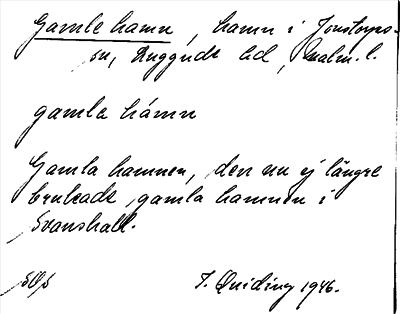 Gamle hamn, hamn i Jonstorps
sn, Luggude hd, Malm. l.
gamla hámn
Gamla hamnen, den nu ej längre
brukade gamla hamnen i
Svanshall.
T. Quiding 1946.